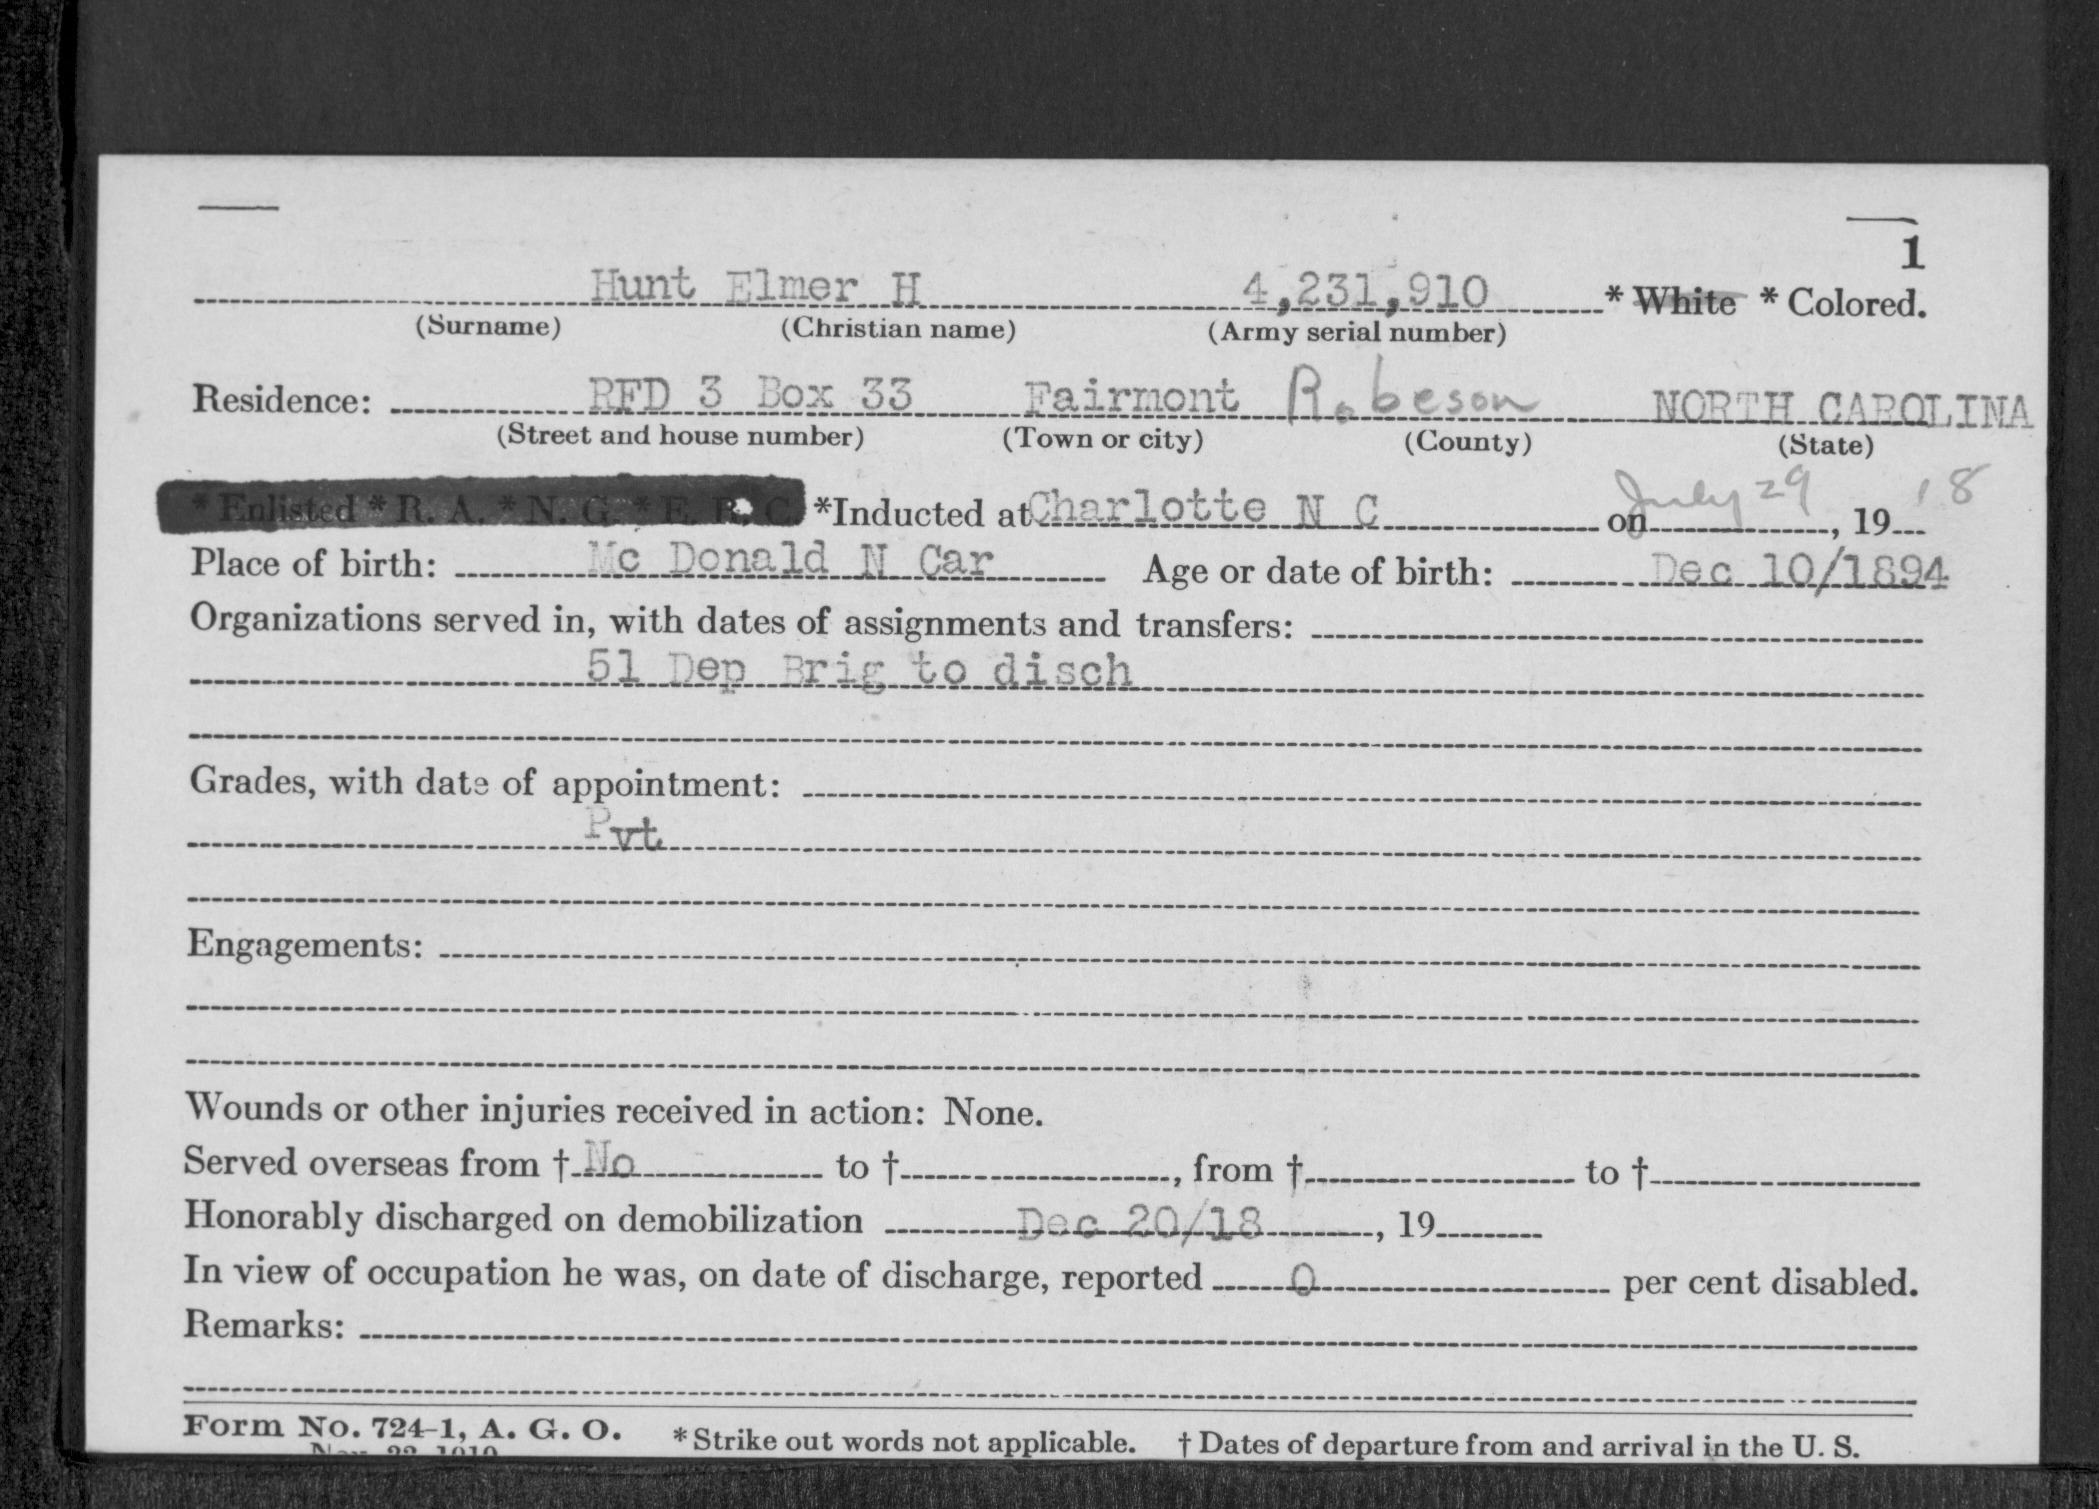 1
Hunt Elmer H 4,231,910 * White * Colored.
(Surname) (Christian name) (Army serial number)
Residence: RFD 3 Box 33 Fairmont Robeson NORTH CAROLINA
(Street and house number) (Town or city) (County) (State)
* Enlisted * R. A. * N. G. * E. R. C. *Inducted at Charlotte N C on July 29, 1918
Place of birth: Mc Donald N Car Age or date of birth: Dec 10/1894
Organizations served in, with dates of assignments and transfers:
51 Dep Brig to disch
Grades, with date of appointment:
Pvt
Engagements:
Wounds or other injuries received in action: None.
Served overseas from † No to †, from † to †
Honorably discharged on demobilization Dec 20/18, 19
In view of occupation he was, on date of discharge, reported 0 per cent disabled.
Remarks:
Form No. 724-1, A. G. O. * Strike out words not applicable. † Dates of departure from and arrival in the U. S.